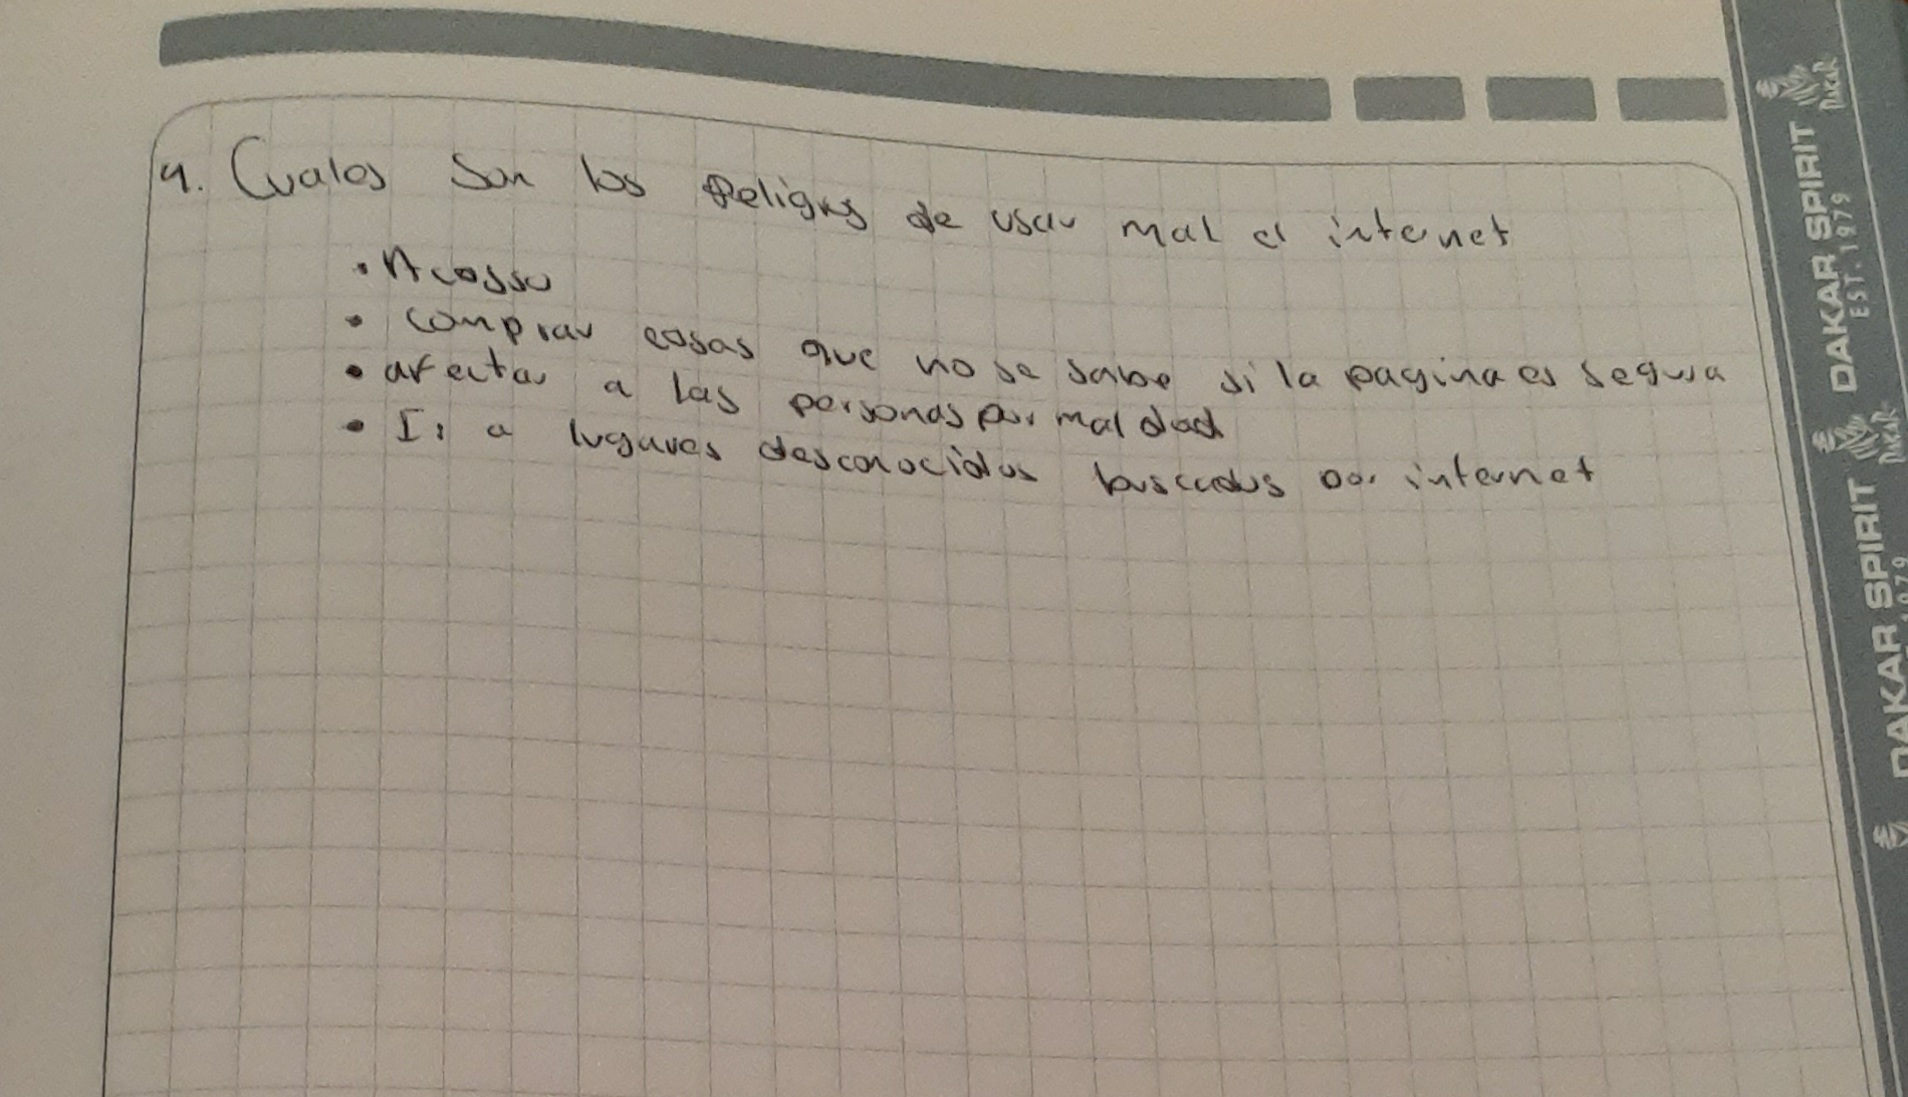 4. Cuales son los Peligros de usar mal el internet
• Acosso
• comprar cosas que no se sabe si la pagina es segura
• afectar a las personas por maldad
• Ir a lugares desconocidos buscados por internet
DAKAR SPIRIT
EST. 1979
DAKAR
DAKAR SPIRIT
1979
DAKAR